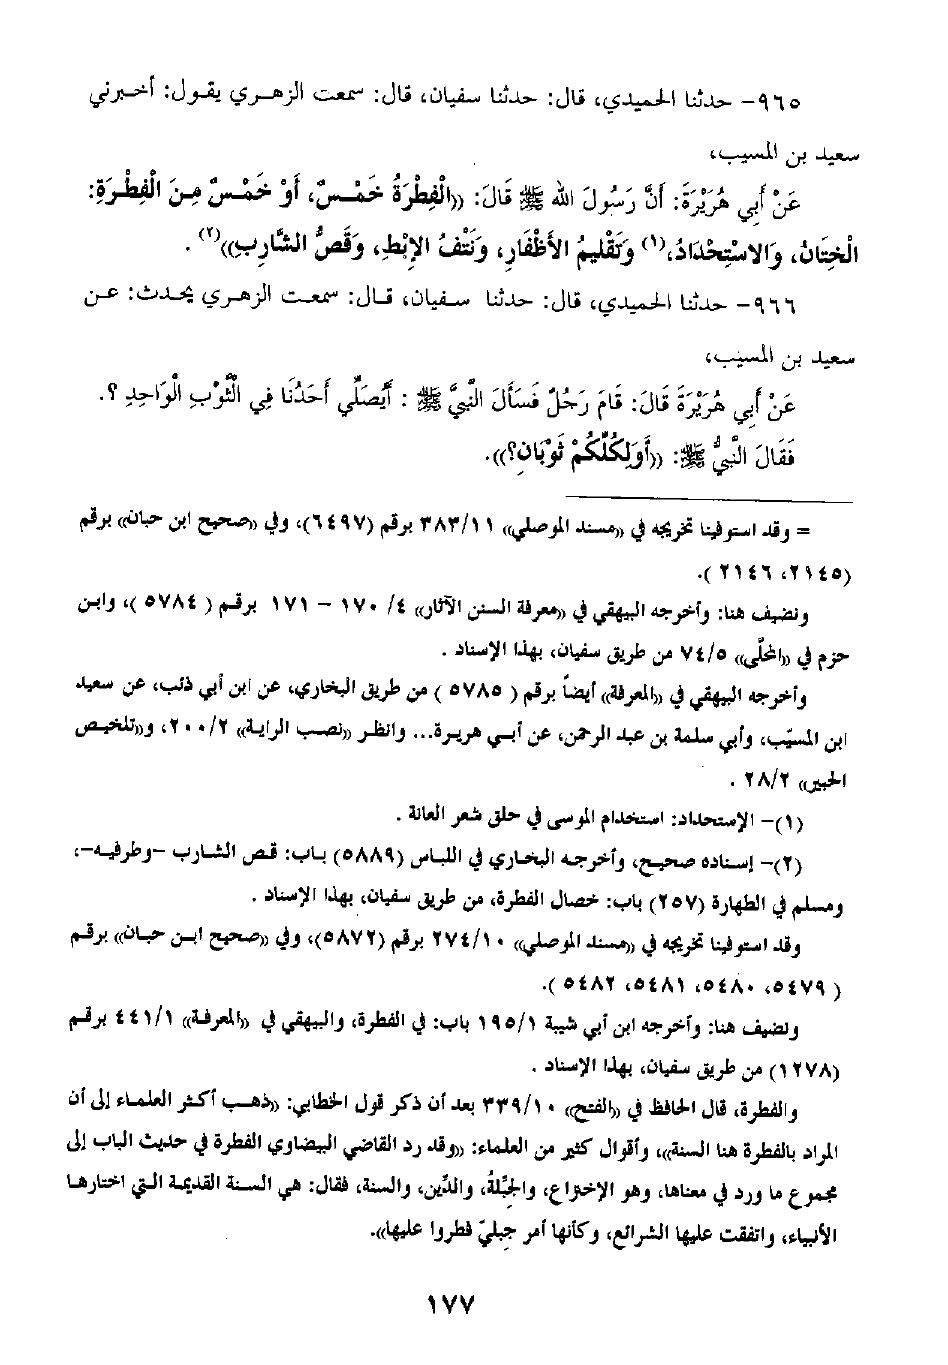 ٩٦٥- حدثنا الحميدي، قال: حدثنا سفيان، قال: سمعت الزهري يقول: أخبرني
سعيد بن المسيب،
عَنْ أَبِي هُرَيْرَةَ: أَنَّ رَسُولَ الله ﷺ قَالَ: ((الْفِطْرَةُ خَمْسٌ، أَوْ خَمْسٌ مِنَ الْفِطْرَةِ:
الْخِتَانُ، وَالاسْتِحْدَادُ،(١) وَتَقْلِيمُ الأَظْفَارِ، وَنَتْفُ الإِبْطِ، وَقَصُّ الشَّارِبِ))(٢) .
٩٦٦- حدثنا الحميدي، قال: حدثنا سفيان، قال: سمعت الزهري يحدث: عن
سعيد بن المسيب،
عَنْ أَبِي هُرَيْرَةَ قَالَ: قَامَ رَجُلٌ فَسَأَلَ النَّبِيَّ ﷺ : أَيُصَلِّي أَحَدُنَا فِي الثَّوْبِ الْوَاحِدِ ؟.
فَقَالَ النَّبِيُّ ﷺ: ((أَوَلِكُلِّكُمْ ثَوْبَانِ؟)).
= وقد استوفينا تخريجه في ((مسند الموصلي)) ٣٨٣/١١ برقم (٦٤٩٧)، وفي ((صحيح ابن حبان)) برقم
(٢١٤٥، ٢١٤٦ ).
ونضيف هنا: وأخرجه البيهقي في ((معرفة السنن الآثار)) ٤/ ١٧٠ - ١٧١ برقم ( ٥٧٨٤ )، وابن
حزم في ((المحلّى)) ٧٤/٥ من طريق سفيان، بهذا الإسناد .
وأخرجه البيهقي في ((المعرفة)) أيضاً برقم ( ٥٧٨٥ ) من طريق البخاري، عن ابن أبي ذئب، عن سعيد
ابن المسيّب، وأبي سلمة بن عبد الرحمن، عن أبي هريرة... وانظر ((نصب الراية)) ٢٠٠/٢، و((تلخيص
الحبير)) ٢٨/٢ .
(١)- الإستحداد: استخدام الموسى في حلق شعر العانة .
(٢)- إسناده صحيح، وأخرجه البخاري في اللباس (٥٨٨٩) باب: قص الشارب -وطرفيه-،
ومسلم في الطهارة (٢٥٧) باب: خصال الفطرة، من طريق سفيان، بهذا الإسناد .
وقد استوفينا تخريجه في ((مسند الموصلي)) ٢٧٤/١٠ برقم (٥٨٧٢)، وفي ((صحيح ابن حبان)) برقم
( ٥٤٧٩، ٥٤٨٠، ٥٤٨١، ٥٤٨٢ ).
ونضيف هنا: وأخرجه ابن أبي شيبة ١٩٥/١ باب: في الفطرة، والبيهقي في ((المعرفة)) ٤٤١/١ برقم
(١٢٧٨) من طريق سفيان، بهذا الإسناد .
والفطرة، قال الحافظ في ((الفتح)) ٣٣٩/١٠ بعد أن ذكر قول الخطابي: ((ذهب أكثر العلماء إلى أن
المراد بالفطرة هنا السنة))، وأقوال كثير من العلماء: ((وقد رد القاضي البيضاوي الفطرة في حديث الباب إلى
مجموع ما ورد في معناها، وهو الإختراع، والجبلّة، والدّين، والسنة، فقال: هي السنة القديمة التي اختارها
الأنبياء، واتفقت عليها الشرائع، وكأنها أمر جبليّ فطروا عليها)).
١٧٧